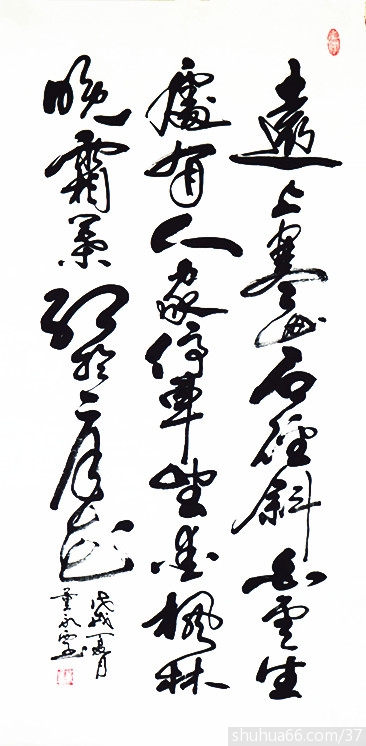 遠上寒山石徑斜白雲生
處有人家停車坐愛楓林
晚霜葉紅於二月花
戊戌夏月
shuhua66.com/37